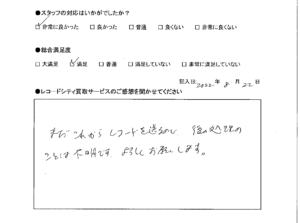 ●スタッフの対応はいかがでしたか？
☑非常に良かった □良かった □普通 □良くない □非常に良くない
●総合満足度
□大満足 ☑満足 □普通 □満足していない □非常に満足していない
記入日 2022年 8月 22日
●レコードシティ買取サービスのご感想を聞かせてください
まだこれからレコードを送るので 後の処理の
ことは不明です よろしくお願いします。